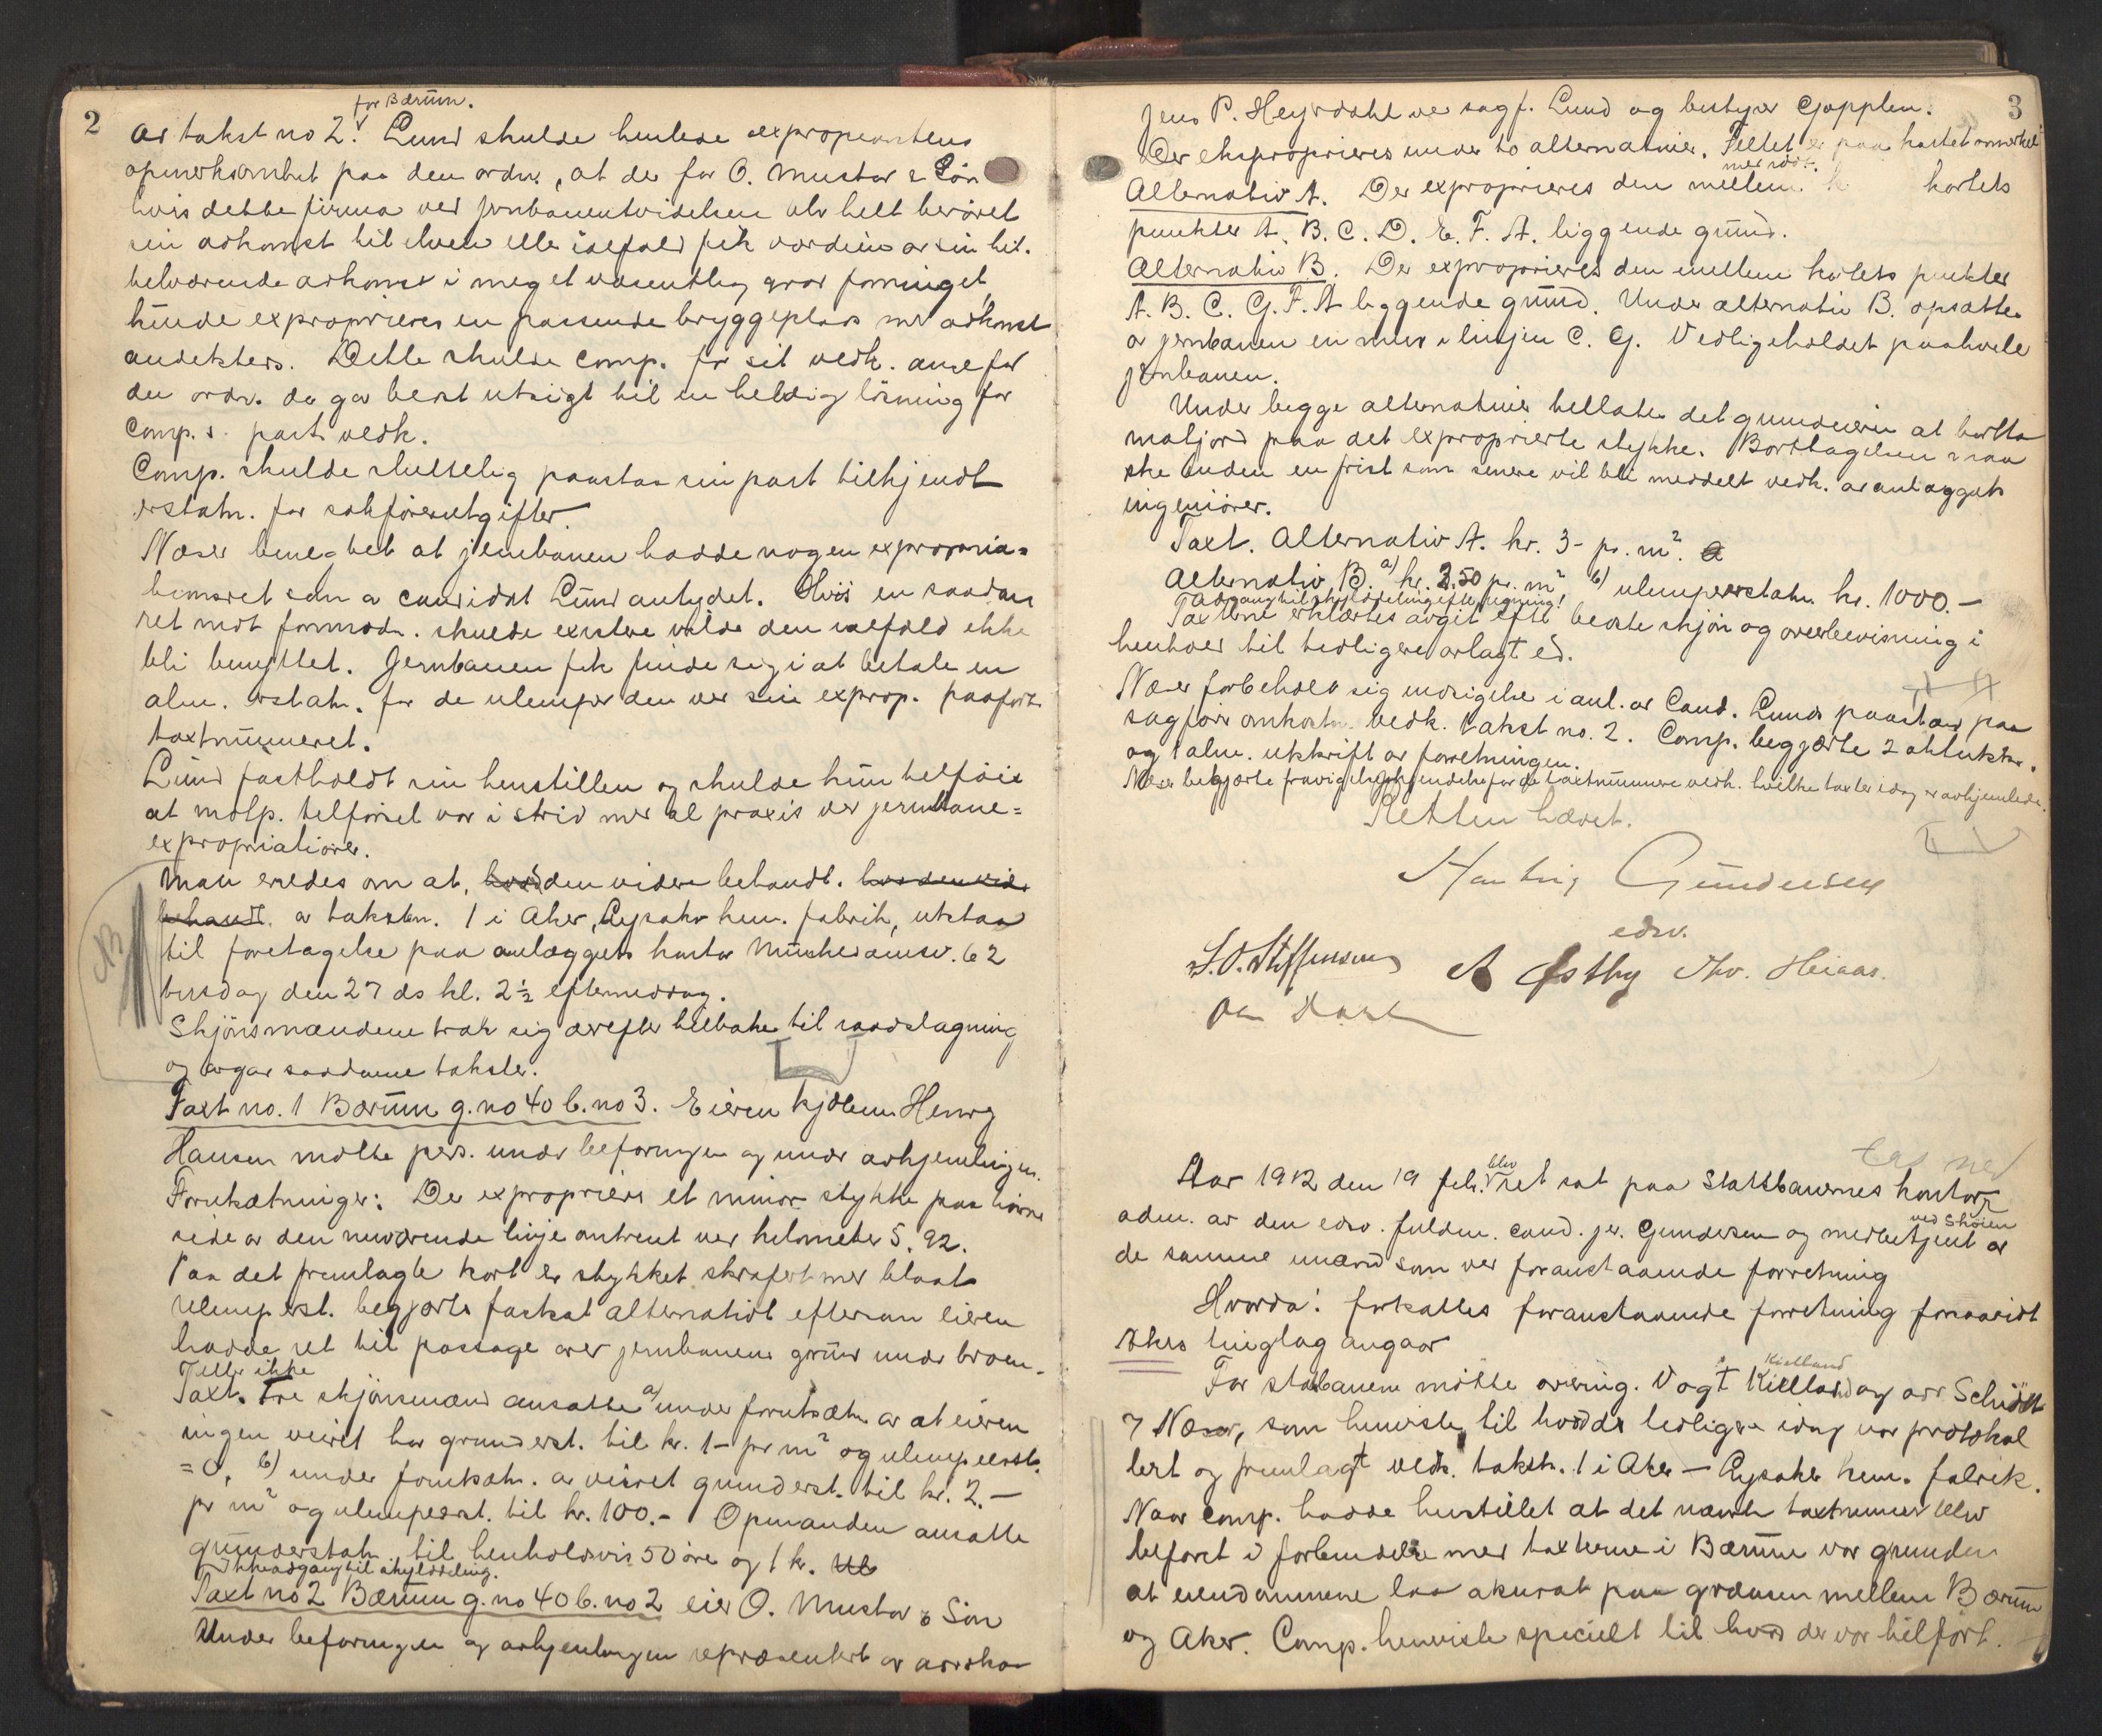 2
for Bærum.
av takst no 2. Lund skulde henlede expropriantens
opmerksomhet paa den ordn., at der for O. Mustad & Søn
hvis dette firma ved jernbaneutvidelsen blv helt berøvet
sin adkomst til elven eller ialfald fik værdien av sin til-
kommende adkomst i meget væsentlig grad forringet,
kunde exproprieres en passende bryggeplads med adkomst
andetsteds. Dette skulde comp. for sit vedk. anse for
den ordn. der gav best utsigt til en heldig løsning for
comp.s part vedk.
Comp. skulde slutselig paastaa sin part tilkjendt
erstatn. for sakførerutgifter.
Næser benegtet at jernbanen hadde nogen expropria=
tionsret som av candidat Lund antydet. Hvis en saadan
ret mot formodn. skulde existere vilde den ialfald ikke
bli benyttet. Jernbanen fik finde sig i at betale en
alm. erstatn. for de ulemper den ved sin exprop. paaførte
taxtnummeret.
Lund fastholdt sin henstillen og skulde kun tilføie
at motp. tilførsel var i strid med al praxis ved jernbane=
expropriationer.
NB
Man enedes om at, hvad den videre behandl. hvad den vider
behandl. av takstn. 1 i Aker, Lysaker kem. fabrik, utstaa
til foretagelse paa anlæggets kontor Munkedamsv. 62
tirsdag den 27 ds kl. 2½ eftermiddag.
Skjønsmændene trak sig derefter tilbake til raadslagning
og avgav saadanne takster.
Taxt no. 1 Bærum g.no 40 b.no 3. Eieren kjøbm. Henry
Hansen møtte pers. under befaringen og under avhjemlingen.
Forutsætninger: Der exproprieres et mindre stykke paa høire
side av den nuværende linje omtrent ved kilometer 5.92.
Paa det fremlagte kort er stykket skrafert med blaat.
Ulemperst. begjærtes fastsat alternativt eftersom eieren
hadde ret til passage over jernbanens grund under broen
eller ikke
Taxt. Tre skjønsmænd ansatte a) under forutsætn. av at eieren
ingen veiret har grunderst. til kr. 1- pr m² og ulemperst.
= 0, b) under forutsætn. av veiret grunderst. til kr. 2.-
pr m² og ulemperst. til kr. 100.- Opmanden ansatte
grunderstatn. til henholdsvis 50 øre og 1 kr.
Ikke adgang til skylddeling.
Taxt no 2 Bærum g.no 40 b.no 2 eier O. Mustad & Søn
Under befaringen og avhjemlingen repræsentert av advokat
3
Jens P. Heyerdahl ved sagf. Lund og bestyrer Gjopplen.
Der eksproprieres under to alternativer. Feltet er paa kartet anmerket
med rødt.
Alternativ A. Der exproprieres den mellem kartets
punkter A. B. C. D. E. F. A. liggende grund.
Alternativ B. Der exproprieres den mellem kartets punkter
A. B. C. G. F. A liggende grund. Under alternativ B. opsættes
av jernbanen en mur i linjen C. G. Vedligeholdet paahviler
jernbanen.
Under begge alternativer tillates det grundeieren at bortta
matjord paa det exproprierte stykke. Borttagelsen maa
ske inden en frist som senere vil bli meddelt vedk. av anlæggets
ingeniører.
Taxt. Alternativ A. kr. 3- pr. m².
Alternativ B. a) kr. 3.50 pr. m² b) ulemperstatn. kr. 1000.-
Adgang til skylddeling efter regning!
Taxterne erklærtes avgit efter bedste skjøn og overbevisning i
henhold til tidligere avlagt ed.
Næser forbeholdt sig indsigelse i anl. av Cand. Lunds paastand paa
sagfører omkostn. vedk. takst no. 2. Comp. begjærte 2 aktstykker
og 1 alm. utskrift av forretningen.
Næser begjærte fravigelseskjendelse for de taxtnummere vedk. hvilke taxter idag er avhjemlede.
Retten hævet.
Hartvig Gundersen
edsv.
S. O. Steffensen A Østby Thv. Heiaas.
Aar 1912 den 19 feb. blev ret sat paa Statsbanernes kontor
ved Skøien
adm. av den edsv. fuldm. cand. jur. Gundersen og medbetjent av
de samme mænd som ved foranstaaende forretning
Hvorda! fortsattes foranstaaende forretning forsaavidt
Akers tinglag angaar
Kielland
For statsbanerne møtte overing. Vogt Kielland og adv Schiøtt
7 Næser, som henviste til hvad der tidligere idag var protokol
lert og fremlagt vedk. takstn. 1 i Aker - Lysaker kem. fabrik.
Naar comp. hadde henstillet at det nævnte taxtnummer blev
befaret i forbindelse med taxterne i Bærum var grunden
at eiendommene laa akurat paa grænsen mellem Bærum
og Aker. Comp. henviste specielt til hvad der var tilført.